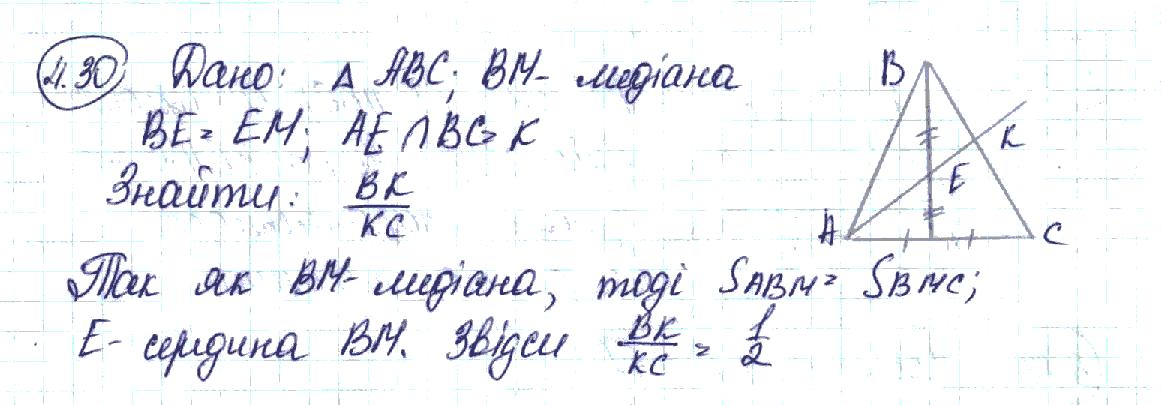 4.30 Дано: Δ ABC; BM - медіана
BE = EM; AE ∩ BC = K
Знайти: BK/KC
Так як BM - медіана, тоді S ABM = S BMC;
E - середина BM. Звідси BK/KC = 1/2
B
K
E
A
C